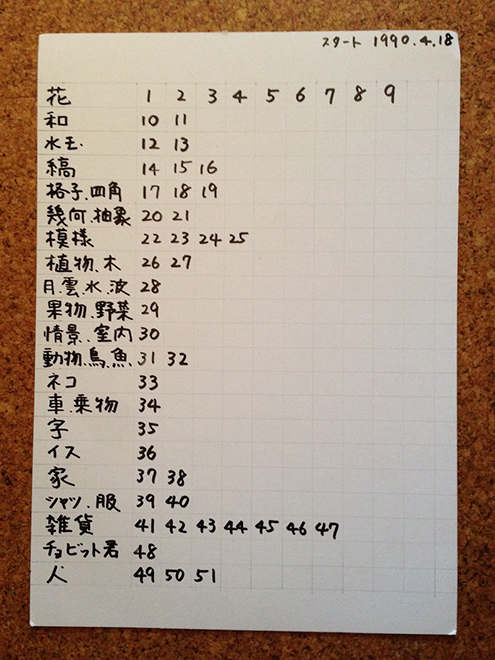 スタート 1990.4.18
花 1 2 3 4 5 6 7 8 9
和 10 11
水玉. 12 13
縞 14 15 16
格子.四角 17 18 19
幾何.抽象 20 21
模様 22 23 24 25
植物.木 26 27
月.雲.水.波 28
果物.野菜 29
情景.室内 30
動物.鳥.魚. 31 32
ネコ 33
車.乗物 34
字 35
イス 36
家 37 38
シャツ.服 39 40
雑貨 41 42 43 44 45 46 47
チョビット君 48
人 49 50 51